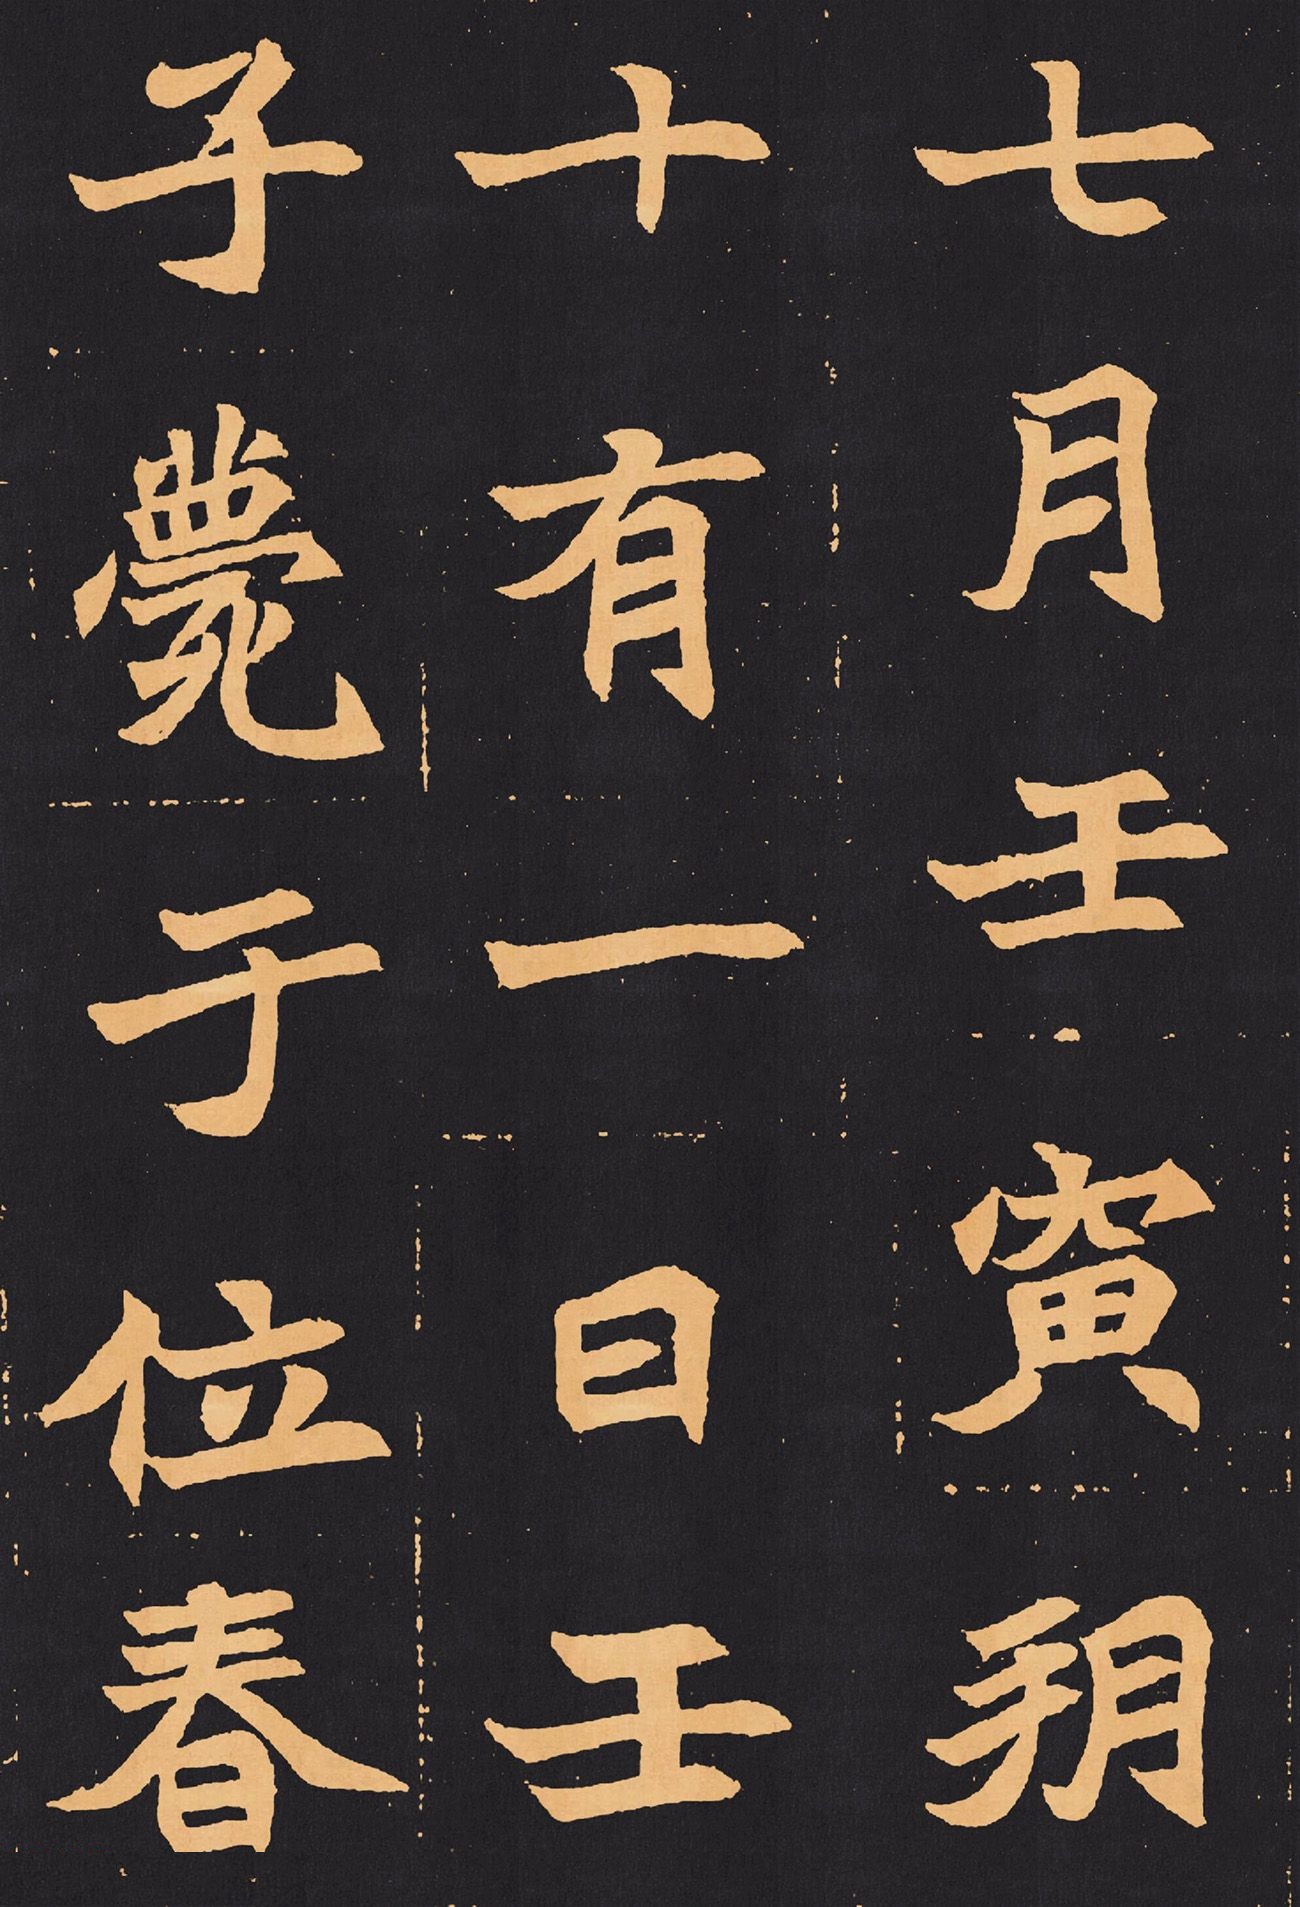 七月壬寅朔
十有一日壬
子薨于位春